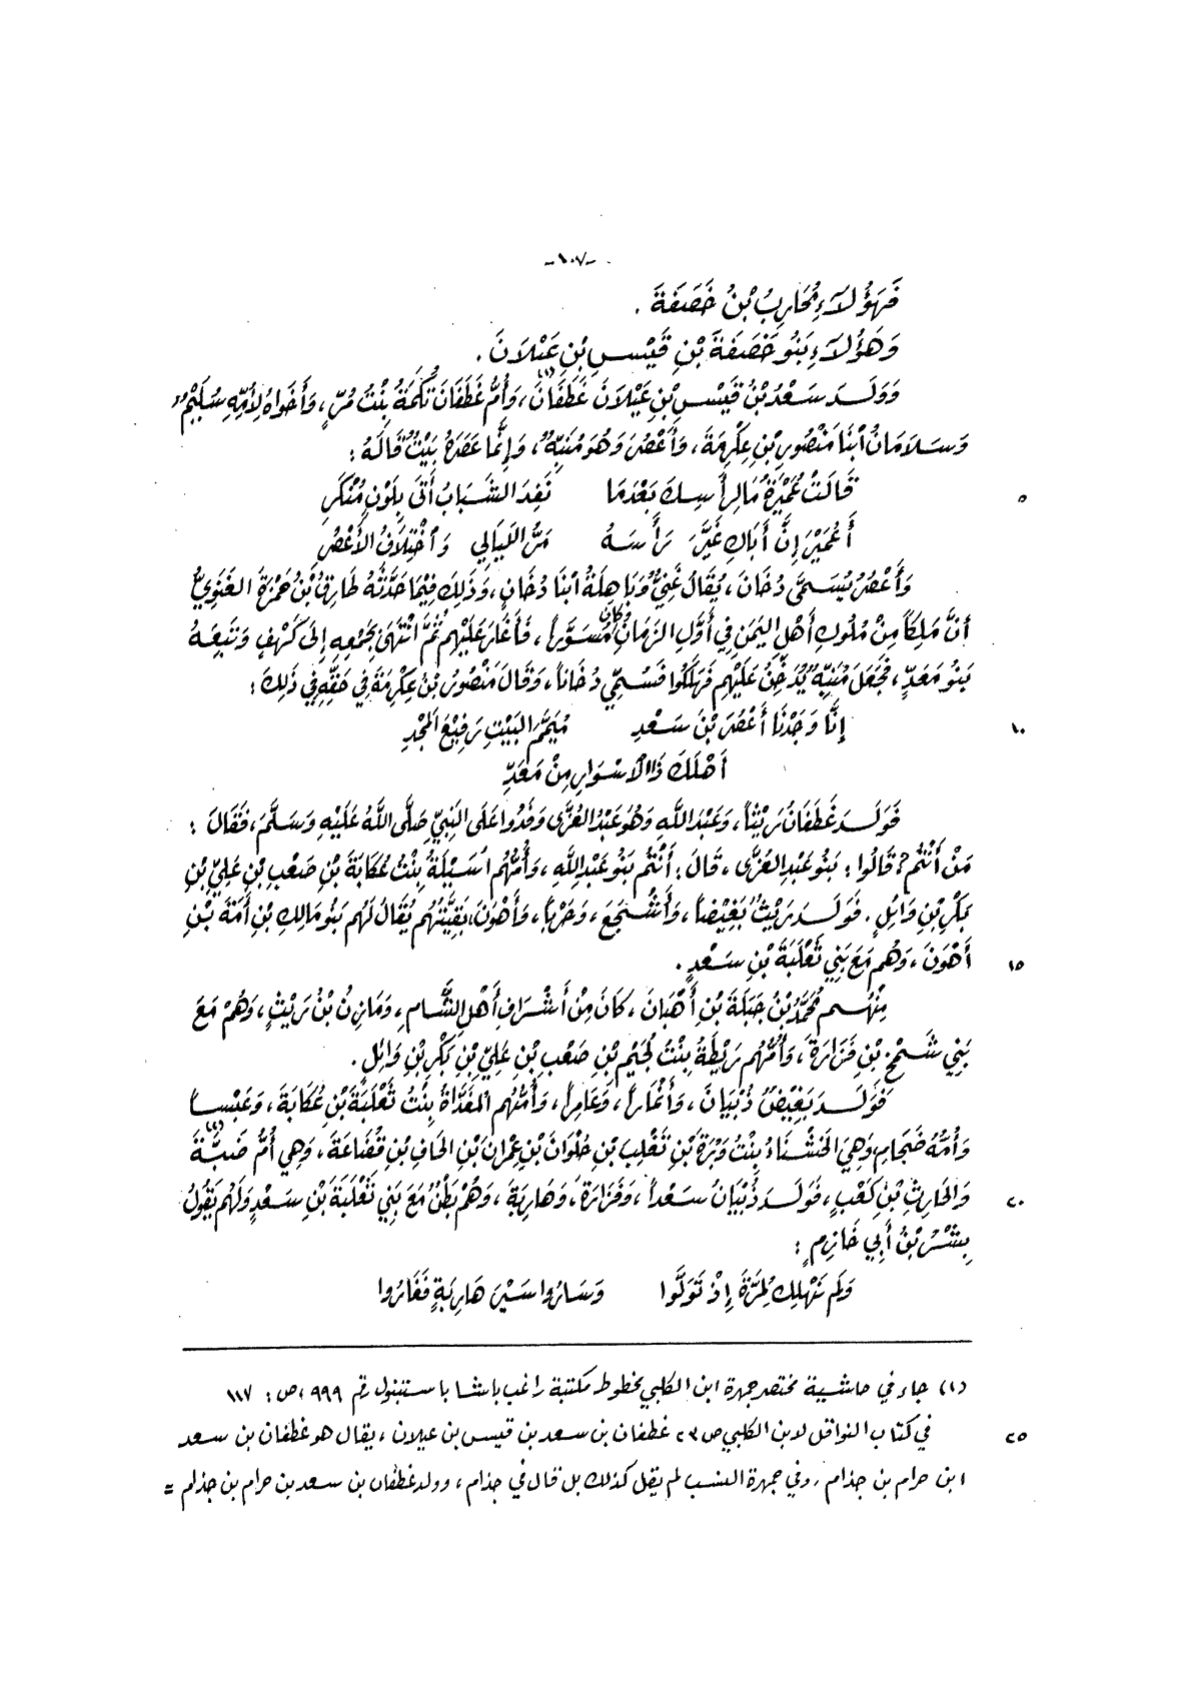 -١٠٧-
فَهَؤُلاَءِ مُحَارِبُ بْنُ خَصَفَةَ .
وَهَؤُلاَءِ بَنُو خَصَفَةَ بْنِ قَيْسِ بْنِ عَيْلاَنَ .
وَوَلَدَ سَعْدُ بْنُ قَيْسِ بْنِ عَيْلاَنَ غَطَفَانَ(١)، وَأُمُّ غَطَفَانَ تُكْمَةُ بِنْتُ مُرٍّ، وَأَخَوَاهُ لِأُمِّهِ سُلَيْمٌ
وَسَلاَمَانُ ابْنَا مَنْصُورِ بْنِ عِكْرِمَةَ، وَأَعْصُرَ وَهُوَ مُنَبِّهٌ، وَإِنَّمَا عَصَرَهُ بَيْتٌ قَالَهُ :
٥ قَالَتْ عُمَيْرَةُ مَا لِرَأْسِكَ بَعْدَمَا نَفِدَ الشَّبَابُ أَتَى بِلَوْنٍ مُنْكَرِ
أَعُمَيْرَ إِنَّ أَبَاكِ غَيَّرَ رَأْسَهُ مَرُّ اللَّيَالِي وَاخْتِلاَفُ الأَعْصُرِ
وَأَعْصُرُ يُسَمَّى دُخَانَ، يُقَالُ غَنِيٌّ وَبَاهِلَةُ ابْنَا دُخَانٍ، وَذَلِكَ فِيمَا حَدَّثَهُ طَارِقُ بْنُ حَمْزَةَ الغَنَوِيُّ
أَنَّ مَلِكاً مِنْ مُلُوكِ أَهْلِ اليَمَنِ فِي أَوَّلِ الزَّمَانِ كَانَ مُسَوَّراً، فَأَغَارَ عَلَيْهِمْ ثُمَّ انْتَهَى بِجَمْعِهِ إِلَى كَهْفٍ وَتَبِعَهُ
بَنُو مَعَدٍّ، فَجَعَلَ مُنَبِّهٌ يُدَخِّنُ عَلَيْهِم فَهَلَكُوا فَسُمِّيَ دُخَاناً، وَقَالَ مَنْصُورُ بْنُ عِكْرِمَةَ فِي حَقِّهِ فِي ذَلِكَ :
١٠ إِنَّا وَجَدْنَا أَعْصُرَ بْنَ سَعْدِ مُيَمَّمَ البَيْتِ رَفِيْعَ المَجْدِ
أَهْلَكَ ذَا الأَسْوَارِ مِنْ مَعَدِّ
فَوَلَدَ غَطَفَانُ رَيْثاً، وَعَبْدَ اللَّهِ وَهُوَ عَبْدُ العُزَّى وَفَدُوا عَلَى النَّبِيِّ صَلَّى اللَّهُ عَلَيْهِ وَسَلَّمَ، فَقَالَ :
مَنْ أَنْتُمْ؟ قَالُوا : بَنُو عَبْدِ العُزَّى، قَالَ : أَنْتُمْ بَنُو عَبْدِ اللَّهِ، وَأُمُّهُم أُسَيْلَةُ بِنْتُ عُكَابَةَ بْنِ صَعْبِ بْنِ عَلِيِّ بْنِ
بَكْرِ بْنِ وَائِلٍ. فَوَلَدَ رَيْثٌ بَغِيْضاً، وَأَشْجَعَ، وَحَرْباً، وَأَهْوَنَ، بَقِيَّتُهُم يُقَالُ لَهُم بَنُو مَالِكِ بْنِ أَمَةَ بْنِ
١٥ أَهْوَنَ، وَهُم مَعَ بَنِي ثَعْلَبَةَ بْنِ سَعْدٍ.
مِنْهُم مُحَمَّدُ بْنُ جَبَلَةَ بْنِ أُهْبَانَ، كَانَ مِنْ أَشْرَافِ أَهْلِ الشَّامِ، وَمَازِنُ بْنُ رَيْثٍ، وَهُمْ مَعَ
بَنِي شَمْخِ بْنِ فَزَارَةَ، وَأُمُّهُم رَيْطَةُ بِنْتُ لُجَيْمِ بْنِ صَعْبِ بْنِ عَلِيِّ بْنِ بَكْرِ بْنِ وَائِلٍ.
فَوَلَدَ بَغِيْضٌ ذُبْيَانَ، وَأَنْمَاراً، وَعَامِراً، وَأُمُّهُم المُفَدَّاةُ بِنْتُ ثَعْلَبَةَ بْنِ عُكَابَةَ، وَعَبْساً
وَأُمُّهُ ضَجَامِ وَهِيَ الخَشْنَاءُ بِنْتُ وَبَرَةَ بْنِ تَغْلِبَ بْنِ حُلْوَانَ بْنِ عِمْرَانَ بْنِ الحَافِ بْنِ قُضَاعَةَ، وَهِيَ أُمُّ ضَبَّةَ(٢)
٢٠ وَالحَارِثِ بْنِ كَعْبٍ، فَوَلَدَ ذُبْيَانُ سَعْداً، وَفَزَارَةَ، وَهَارِبَةَ، وَهُمْ بَطْنٌ مَعَ بَنِي ثَعْلَبَةَ بْنِ سَعْدٍ وَلَهُم يَقُولُ
بِشْرُ بْنُ أَبِي خَازِمٍ :
وَلَم نَهْلِك لِمُرَّةَ إِذْ تَوَلَّوا وَسَارُوا سَيْرَ هَارِبَةٍ فَغَارُوا
(١) جاء في حاشية مختصر جمهرة ابن الكلبي مخطوط مكتبة راغب باشا باستنبول رقم ٩٩٩ ،ص : ١١٧
٢٥ في كتاب النواقل لابن الكلبي ص ٢٣ غطفان بن سعد بن قيس بن عيلان، يقال هو غطفان بن سعد
ابن حرام بن جذام، وفي جمهرة النسب لم يقل كذلك بل قال في جذام، وولد غطفان بن سعد بن حرام بن جذام =